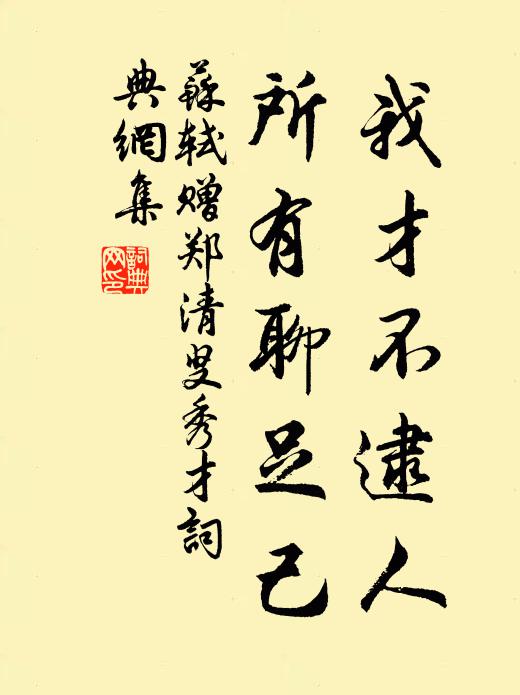 我才不逮人
所有聊足己
蘇軾赠郑清叟秀才詞
典網集
詞典网印